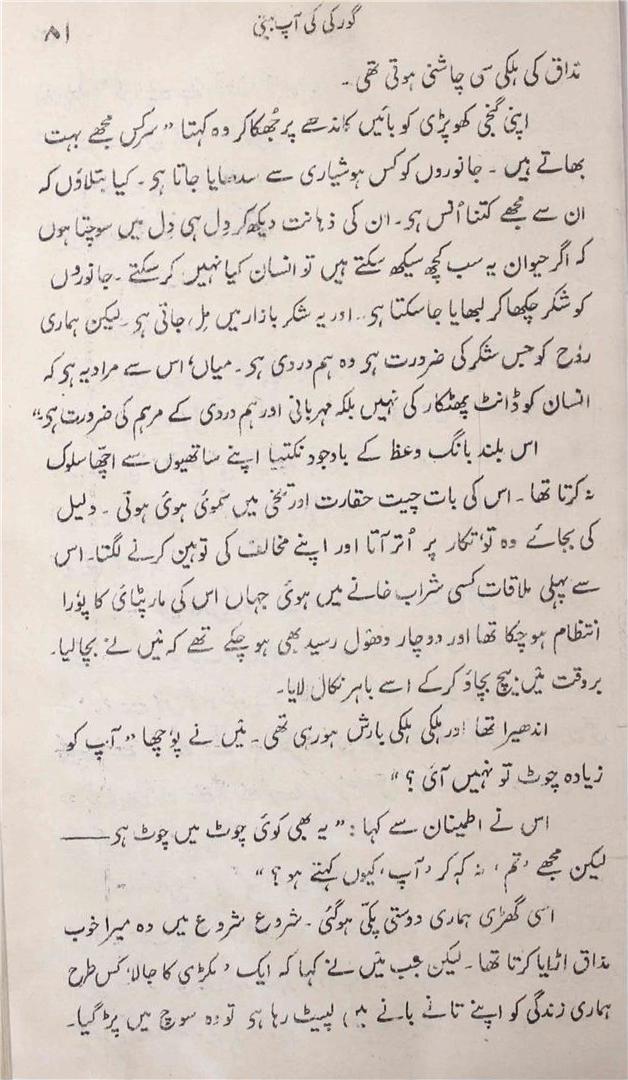 گورکی کی آپ بیتی
۵۱
مذاق کی ہلکی سی چاشنی ہوتی تھی۔
اپنی گنجی کھوپڑی کو بائیں کاندھے پر جُھکا کر وہ کہتا ” سرکس مجھے بہت
بھاتے ہیں ۔ جانوروں کو کس ہوشیاری سے سدھایا جاتا ہی ۔ کیا بتلاؤں کہ
ان سے مجھے کتنا اُنس ہی ۔ ان کی ذہانت دیکھ کر دِل ہی دِل میں سوچتا ہوں
کہ اگر حیوان یہ سب کچھ سیکھ سکتے ہیں تو انسان کیا نہیں کر سکتے ۔ جانوروں
کو شکر چکھا کر لبھایا جا سکتا ہی ۔ اور یہ شکر بازار میں مِل جاتی ہی ۔ لیکن ہماری
روٗح کو جس شکر کی ضرورت ہی وہ ہم دردی ہی ۔ میاں! اس سے مراد یہ ہی کہ
انسان کو ڈانٹ پھٹکار کی نہیں بلکہ مہربانی اور ہم دردی کے مرہم کی ضرورت ہی۔“
اس بلند بانگ وعظ کے باوجود نکتیہا اپنے ساتھیوں سے اچھا سلوک
نہ کرتا تھا ۔ اس کی بات چیت حقارت اور تلخی میں سموئی ہوئی ہوتی ۔ دلیل
کی بجائے وہ توٗ تکار پر اُتر آتا اور اپنے مخالف کی توہین کرنے لگتا۔ اس
سے پہلی ملاقات کسی شراب خانے میں ہوئی جہاں اس کی مار پٹائی کا پوٗرا
انتظام ہو چکا تھا اور دو چار دھول رسید بھی ہو چکے تھے کہ مَیں نے بچا لیا۔
بروقت مَیں بیچ بچاؤ کرکے اسے باہر نکال لایا۔
اندھیرا تھا اور ہلکی ہلکی بارش ہو رہی تھی ۔ مَیں نے پوٗچھا ” آپ کو
زیادہ چوٹ تو نہیں آئی ؟ “
اس نے اطمینان سے کہا : ” یہ بھی کوئی چوٹ میں چوٹ ہی ——
لیکن مجھے ’تم‘ نہ کہہ کر ’آپ‘ کیوں کہتے ہو ؟ “
اسی گھڑی ہماری دوستی پکّی ہوگئی ۔ شروع شروع میں وہ میرا خوب
مذاق اڑایا کرتا تھا ۔ لیکن جب مَیں نے کہا کہ ایک ’مکڑی کا جالا‘ کس طرح
ہماری زندگی کو اپنے تانے بانے میں لپیٹ رہا ہی تو وہ سوچ میں پڑ گیا۔